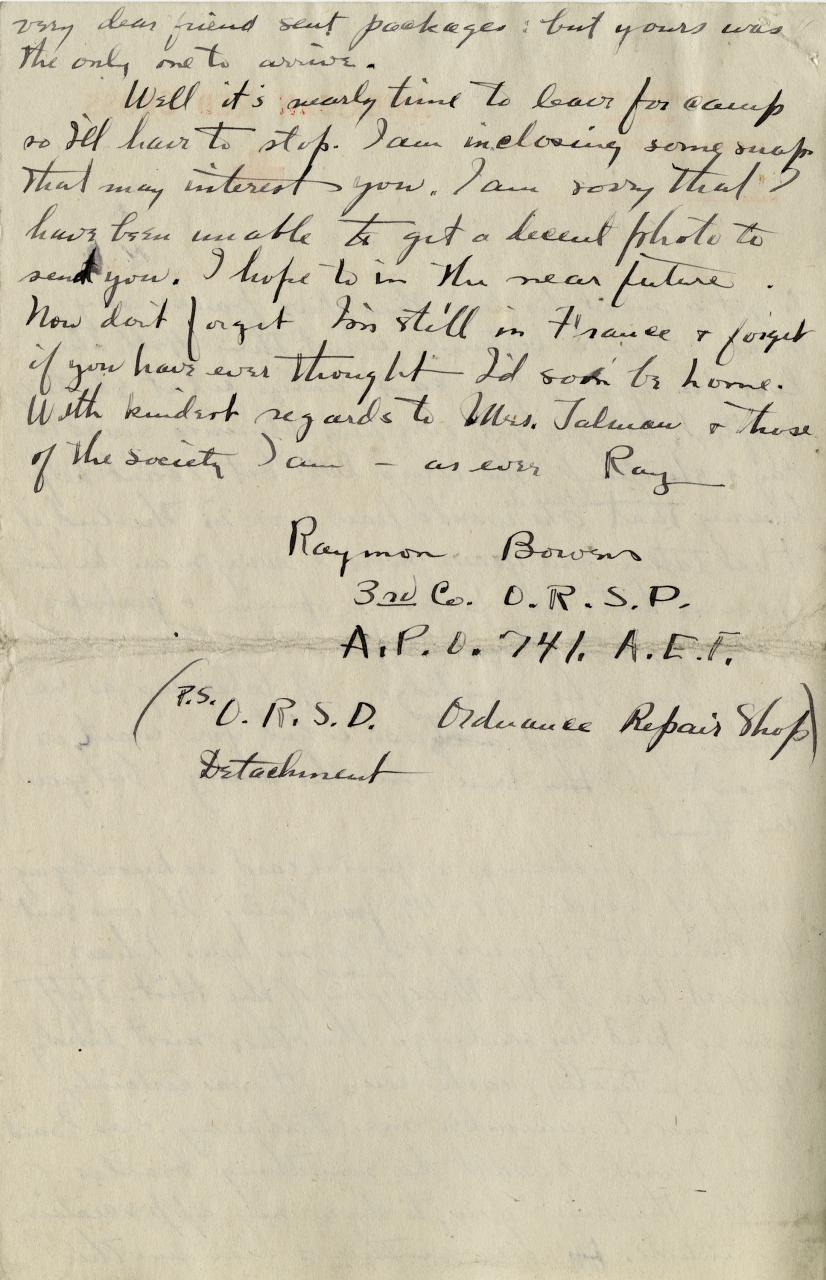 very dear friend sent packages: but yours was
the only one to arrive.
Well it's nearly time to leave for camp
so I'll have to stop. I am inclosing some snaps
that may interest you. I am sorry that I
have been unable to get a decent photo to
send you. I hope to in the near future.
Now don't forget I'm still in France & forget
if you have ever thought I'd soon be home.
With kindest regards to Mrs. Talman & those
of the society I am - as ever Ray
Raymon Bowens
3rd Co. O.R.S.D.
A.P.O. 741. A.E.F.
(P.S. O.R.S.D. Ordnance Repair Shop)
Detachment